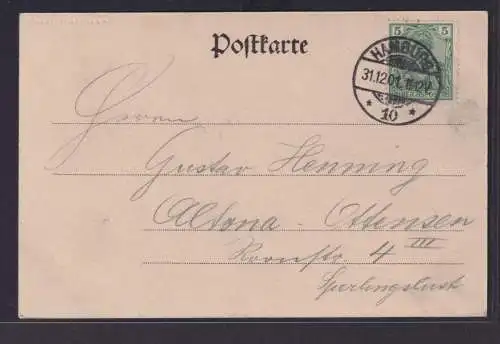 5 5
Postkarte
HAMBURG
31.12.01. 11-12V.
* 10 *
Herrn
Gustav Henning
Altona - Ottensen
Roonstr. 4 III
Sperlingslust